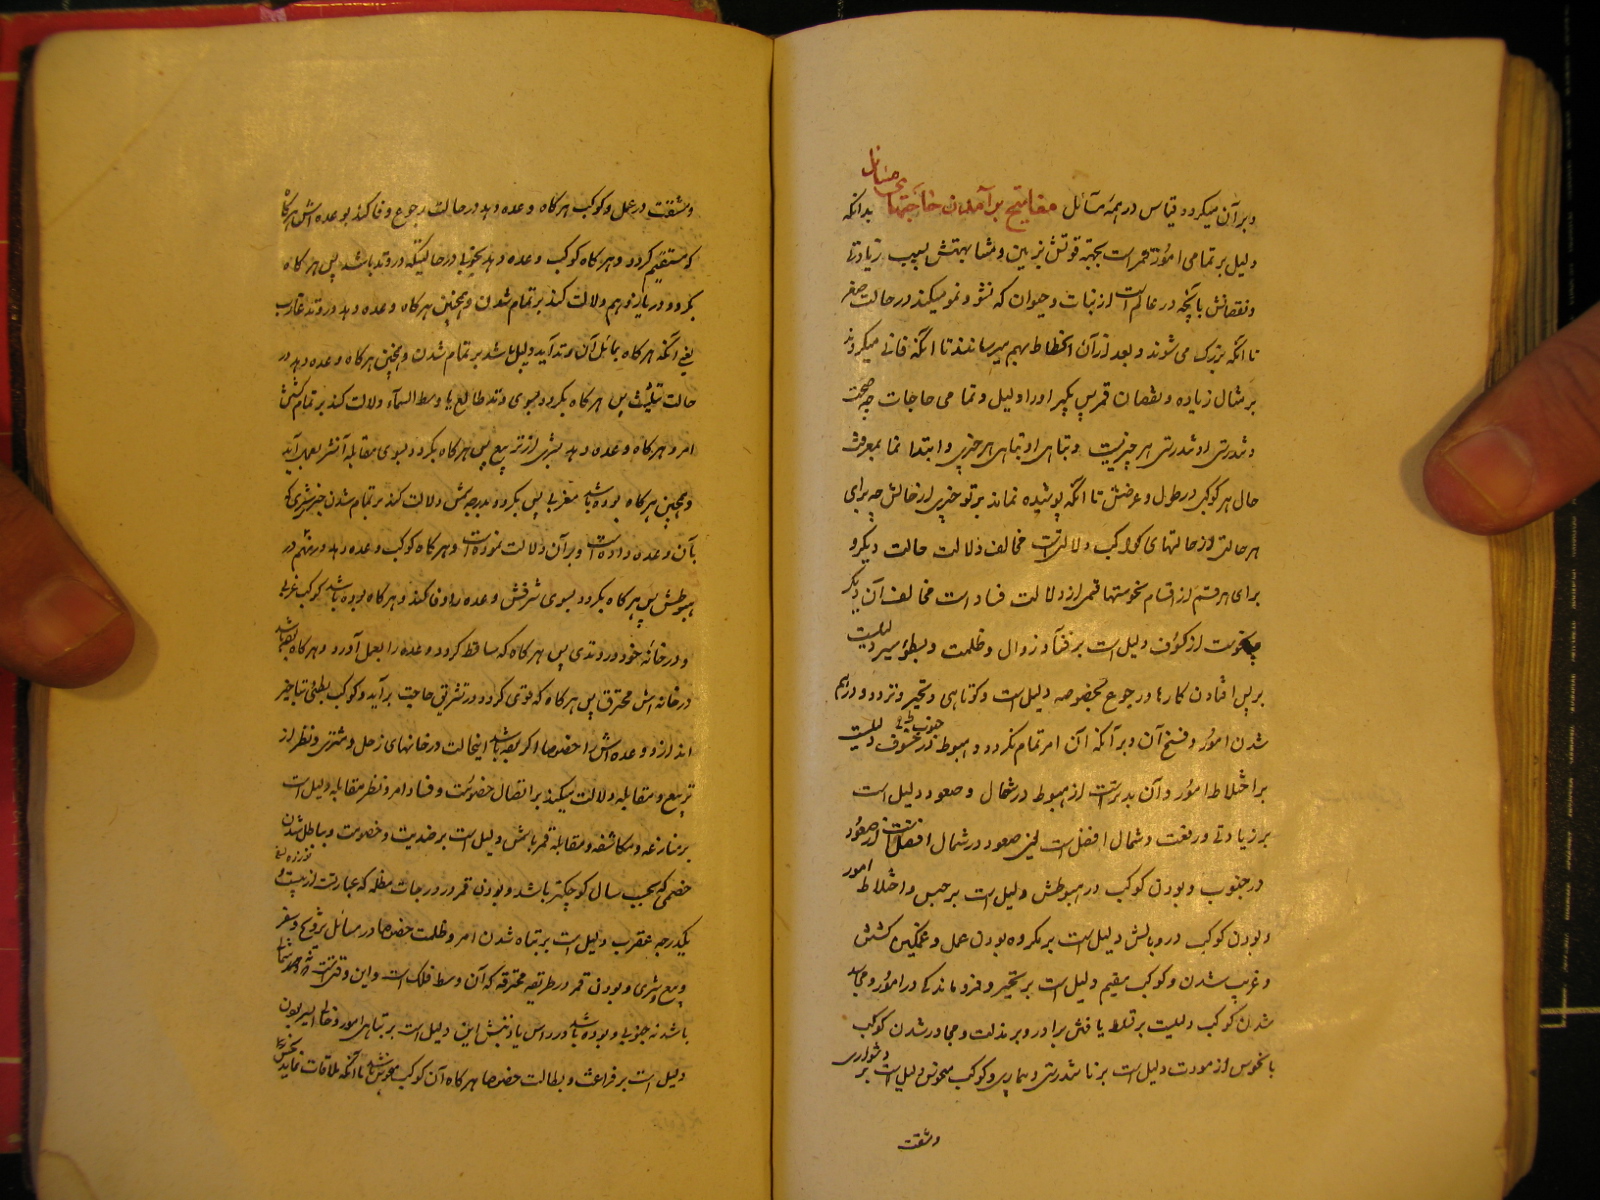 وبرآن میکردد قیاس در همه مسائل مفاتیح برآمدن حاجتهای مسائل بدانکه
دلیل بر تمامی امور قمر است بجهة قوتش بزمین ومشابهتش بسبب زیادتی
ونقصانش بآنچه در عالم است از نبات وحیوان که نشو ونمو میکند در حالت صغر
تا آنکه بزرک می شوند وبعد از آن انحطاط بهم میرسانند تا آنکه فانی میکردند
بر مثال زیاده ونقصان قمر پس بکیر اورا دلیل وتمامی حاجات چه صحت
وتندرستی او تندرستی هر چیزیست وتباهی او تباهی هر چیزی وابتدا نما بمعرفت
حال هر کوکب در طول وعرضش تا آنکه پوشیده نماند بر تو چیزی از حالش چه برای
هر حالتی از حالتهای کواکب دلالتی است مخالف دلالت حالت دیکر و
برای هر قسم از اقسام نحوستها قمر از دلالت فساد است مخالف آن دیکر
از کسوف دلیل است بر فساد وزوال وظلمت وبطؤ سیر دلیلست
بر پس افتادن کارها ورجوع بخصوصه دلیل است وکوتاهی وتحیر وتردد ودرهم
شدن امور وفسخ آن وبر آنکه آن امر تمام نکردد وهبوط در جنوب دلیلست
بر اختلاط امور وآن بدتر است از هبوط در شمال وصعود دلیل است
بر زیادتی ورفعت وشمال افضل است یعنی صعود در شمال افضل است از صعود
در جنوب وبودن کوکب در هبوطش دلیل است بر حبس واختلاط امور
وبودن کوکب در وبالش دلیل است بر مکروه بودن عمل وغمکین کشتن
وغریب شدن وکوکب مقیم دلیل است بر تحیر وفروماندکی در امور ومجاسد
شدن کوکب دلیلست بر تسلط یافتن برادر وبر مذلت ومجاور شدن کوکب
با نحوس از مودت دلیل است بر ناتندرستی وبیماری وکوکب منحوس دلیل است بر دشواری
ومشقت
ومشقت در عمل وکوکب هرکاه وعده دهد در حالت رجوع وفا کند بوعده اش هرکاه
که مستقیم کردد وهرکاه کوکب وعده دهد بخوبی در حالتیکه در وتد باشد پس هرکاه
بکردد در یازدهم دلالت کند بر تمام شدن وهمچنین هرکاه وعده دهد در وتد غارب
یعنی آنکه هرکاه بمائل آن وتد آید دلیل باشد بر تمام شدن وهمچنین هرکاه وعده دهد در
حالت تثلیث پس هرکاه بکردد بسوی وتد طالع یا وسط السماء دلالت کند بر تمام کشتن
امر وهرکاه وعده دهد بشری از تربیع پس هرکاه بکردد بسوی مقابله آن شر بعمل آید
وهمچنین هرکاه بوده باشد مغربی پس بکردد بدرجه کش دلالت کند بر تمام شدن خیر شری که
بآن وعده داده است وبرآن دلالت نموده است وهرکاه کوکب وعده دهد در
هبوطش پس هرکاه بکردد بسوی شرفش وعده را وفا کند وهرکاه بوده باشد کوکب غربی
ودر خانه خود در وتدی پس هرکاه که ساقط کردد وعده را بعمل آورد وهرکاه
در خانه اش محترق پس هرکاه که قوی کردد در تشریق حاجت برآید وکوکب بطیئی بتأخیر
اندازد وعده اش را خصوصا اکر بوده باشد اینحالت در خانهای زحل ومشتری ونظر از
تربیع ومقابله دلالت میکند بر اتصال خصومت وفساد امر ونظر مقابله دلیل است
بر منازعه ومکاشفه ومقابله قمر باشمس دلیل است بر ضدیت وخصومت وباطل شدن
خصمی که بحسب سال کوچکتر باشد وبودن قمر در درجات مظلمه که عبارت از بیست و
یکدرجه عقرب دلیل است بر تباه شدن امر وظلمت خصوصا در مسائل تزویج وسفر
وبیع وشری وبودن قمر در طریقه محترقه که آن وسط فلک است
باشد نه جنوبی وبوده باشد در راس یا ذنبش این دلیل است بر تباهی امور
دلیل است بر فراغت وبطالت خصوصا هرکاه آن کوکب منحوس باشد تا آنکه ملاقات نماید